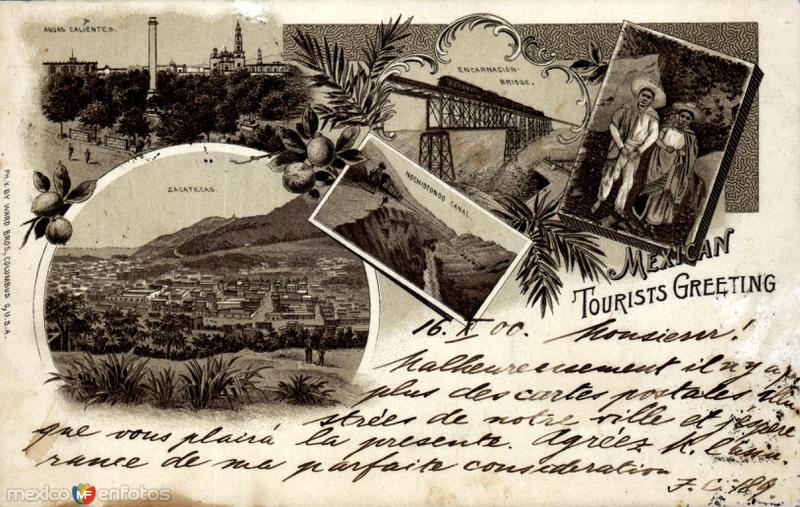 AGUAS CALIENTES.
ENCARNACION
BRIDGE.
ZACATECAS.
NOCHISTONGO CANAL.
PH. V. BY WARD BROS, COLUMBUS O, U.S.A.
MEXICAN
TOURISTS GREETING
16. X 00. Monsieur!
Malheureusement il n'y a
plus des cartes postales
strées de notre ville et j'espère
que vous plairá la presente. Agréez M. l'assu-
rance de ma parfaite consideration
J. C. 189
mexico MF enfotos